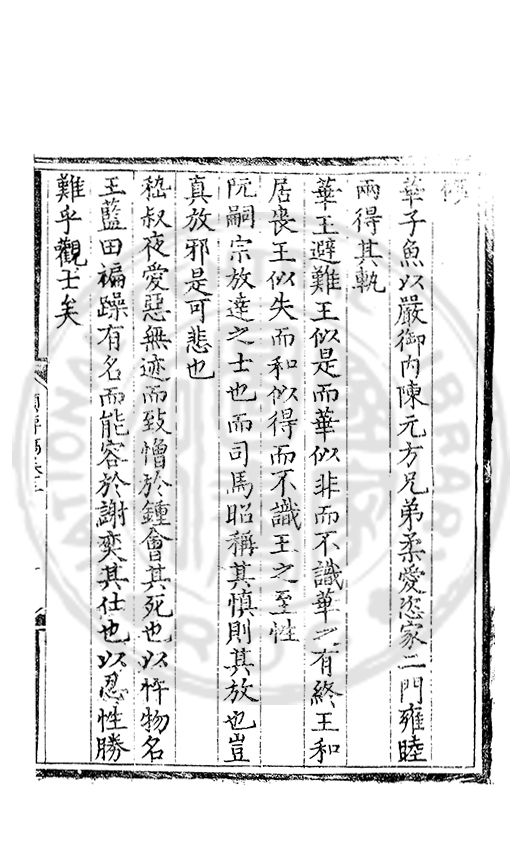 華子魚以嚴御內陳元方兄弟柔愛恣家二門雍睦
兩得其軌
華王避難王似是而華似非而不識華之有終王和
居喪王似失而和似得而不識王之至性
阮嗣宗放達之士也而司馬昭稱其慎則其放也豈
真放邪是可悲也
嵇叔夜愛惡無迹而致憎於鍾會其死也以忤物名
王藍田褊躁有名而能容於謝奕其仕也以忍性勝
難乎觀士矣